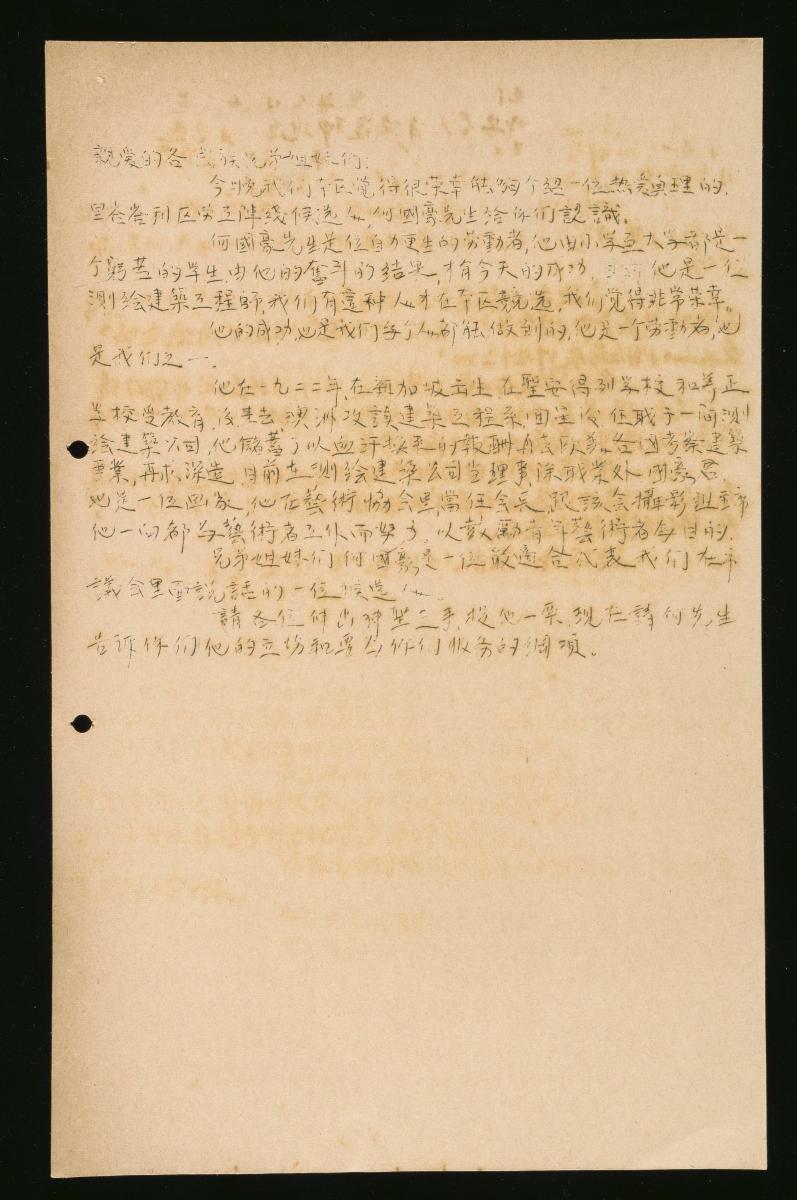 親爱的各民族兄弟姐妹们:
今晚我们本区覺得很荣幸能够介紹一位热爱真理的,
里峇峇利区劳工陣綫候选人,何國豪先生給你们認識。
何國豪先生是位自力更生的劳動者,他由小学至大学都是一
个窮苦的学生,由他的奮斗的結果,才有今天的成功,目前他是一位
測绘建築工程師,我们有這种人才在本区競选,我们觉得非常荣幸。
他的成功,也是我们每个人都能做到的,他是一个劳動者,也
是我们之一.
他在一九二二年,在新加坡出生,在聖安得列学校和养正
学校受教育,後来去澳洲攻讀建築工程系,回星後,任職于一间測
绘建築公司,他儲蓄了以血汗換来的報酬再去欧美各國考察建築
事業,再求深造,目前在測绘建築公司当理事,除職業外,國豪君
也是一位画家,他在藝術協会里當任会長,跟該会攝影組主席
他一向都为藝術者工作而努力,以鼓勵青年藝術者为目的.
兄弟姐妹们,何國豪是一位最適合代表我们在市
議会里面說話的一位候选人.
請各位伸出神聖之手,投他一票,現在請何先生
告訴你们他的立场和要为你们服务的綱項。